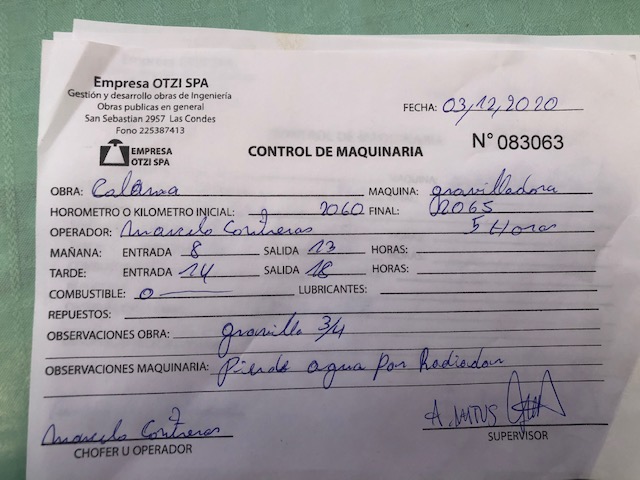 Empresa OTZI SPA
Gestión y desarrollo obras de Ingeniería
Obras publicas en general
San Sebastian 2957 Las Condes
Fono 225387413
FECHA: 03,12,2020
EMPRESA
OTZI SPA
CONTROL DE MAQUINARIA
N° 083063
OBRA: Calama MAQUINA: gravilladora
HOROMETRO O KILOMETRO INICIAL: 2060 FINAL: 02065
OPERADOR: Contreras 5 Horas
MAÑANA: ENTRADA 8 SALIDA 13 HORAS:
TARDE: ENTRADA 14 SALIDA 18 HORAS:
COMBUSTIBLE: 0 LUBRICANTES:
REPUESTOS:
OBSERVACIONES OBRA: gravilla 3/4
OBSERVACIONES MAQUINARIA: Pierde agua por Radiador
Contreras
CHOFER U OPERADOR
SUPERVISOR